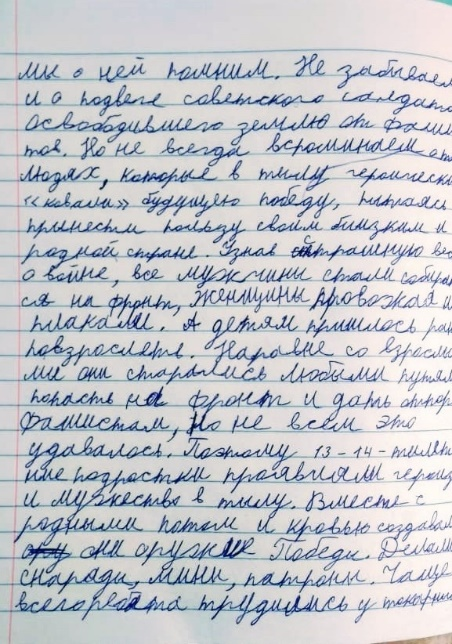 мы о ней помним. Не забываем
и о подвеге советского солдата
освободившего землю от фаши
тов. Но не всегда вспоминаем о т
людях, которые в тылу героически
«ковали» будущею победу, пытаясь
принести пользу своим близким и
родной стране. Узнав страшную вес
о войне, все мужчины стали собира
ся на фронт, женщины провожая и
плакали. А детям пришлось ран
повзрослеть. Наравне со взрослы
ми они старались любыми путям
попасть на фронт и дать отпор
фашистам, но не всем это
удавалось. Поэтому 13-14-тилет
ние подростки проявляли героиз
и мужество в тылу. Вместе с
родными потом и кровью создавал
они оружие Победы. Делали
снаряди, мины, патроны. Чаще
всего ребята трудились у токарны